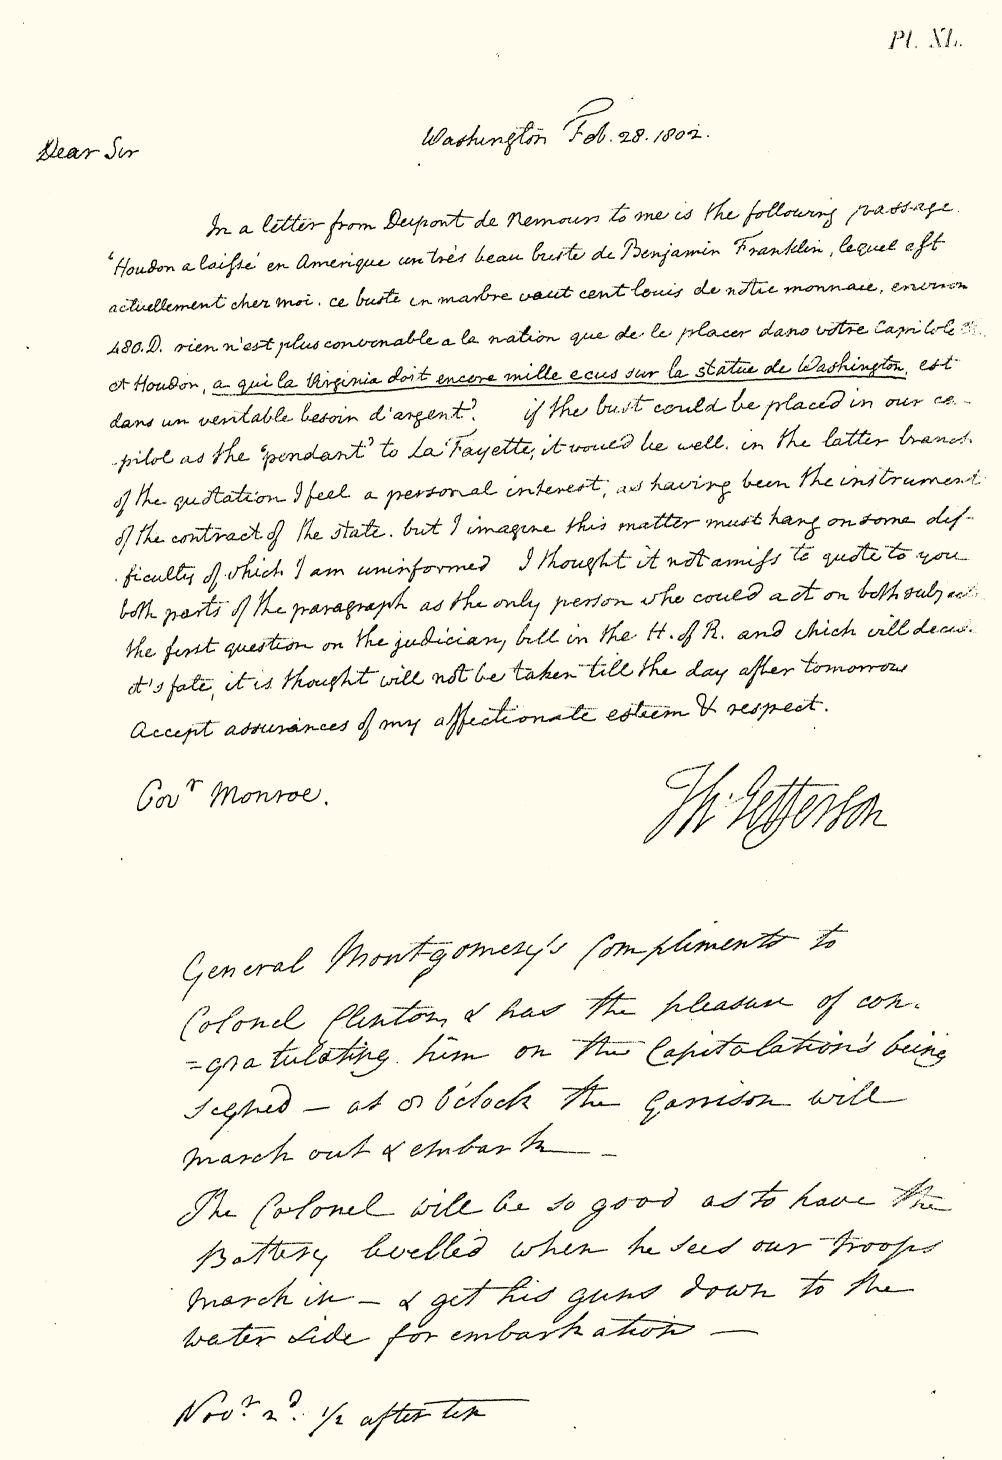 Pl. XL.
Washington Feb. 28. 1802.
Dear Sir
In a letter from Dupont de Nemours to me is the following passage.
'Houdon a laissé en Amerique un très beau buste de Benjamin Franklin, lequel est
actuellement chez moi. ce buste en marbre vaut cent louis de nôtre monnaie, environ
480. D. rien n'est plus convenable a la nation que de le placer dans vôtre Capitole
et Houdon, a qui la Virginia doit encore mille ecus sur la statue de Washington, est
dans un veritable besoin d'argent'. if the bust could be placed in our ca-
pitol as the 'pendant' to La Fayette, it would be well. in the latter branch
of the quotation I feel a personal interest, as having been the instrument
of the contract of the state. but I imagine this matter must hang on some dif-
ficulty of which I am uninformed I thought it not amiss to quote to you
both parts of the paragraph as the only person who could act on both subjects
the first question on the judiciary bill in the H. of R. and which will decide
it's fate, it is thought will not be taken till the day after tomorrow
Accept assurances of my affectionate esteem & respect.
Govr Monroe.
Th: Jefferson
General Montgomery's Compliments to
Colonel Clinton, & has the pleasure of con-
=gratulating him on the Capitulation's being
signed — at 8 O'Clock the Garrison will
march out & embark —
The Colonel will be so good as to have the
Battery levelled when he sees our troops
march in — & get his guns down to the
water side for embarkation —
Novr 2d. 1/2 after ten